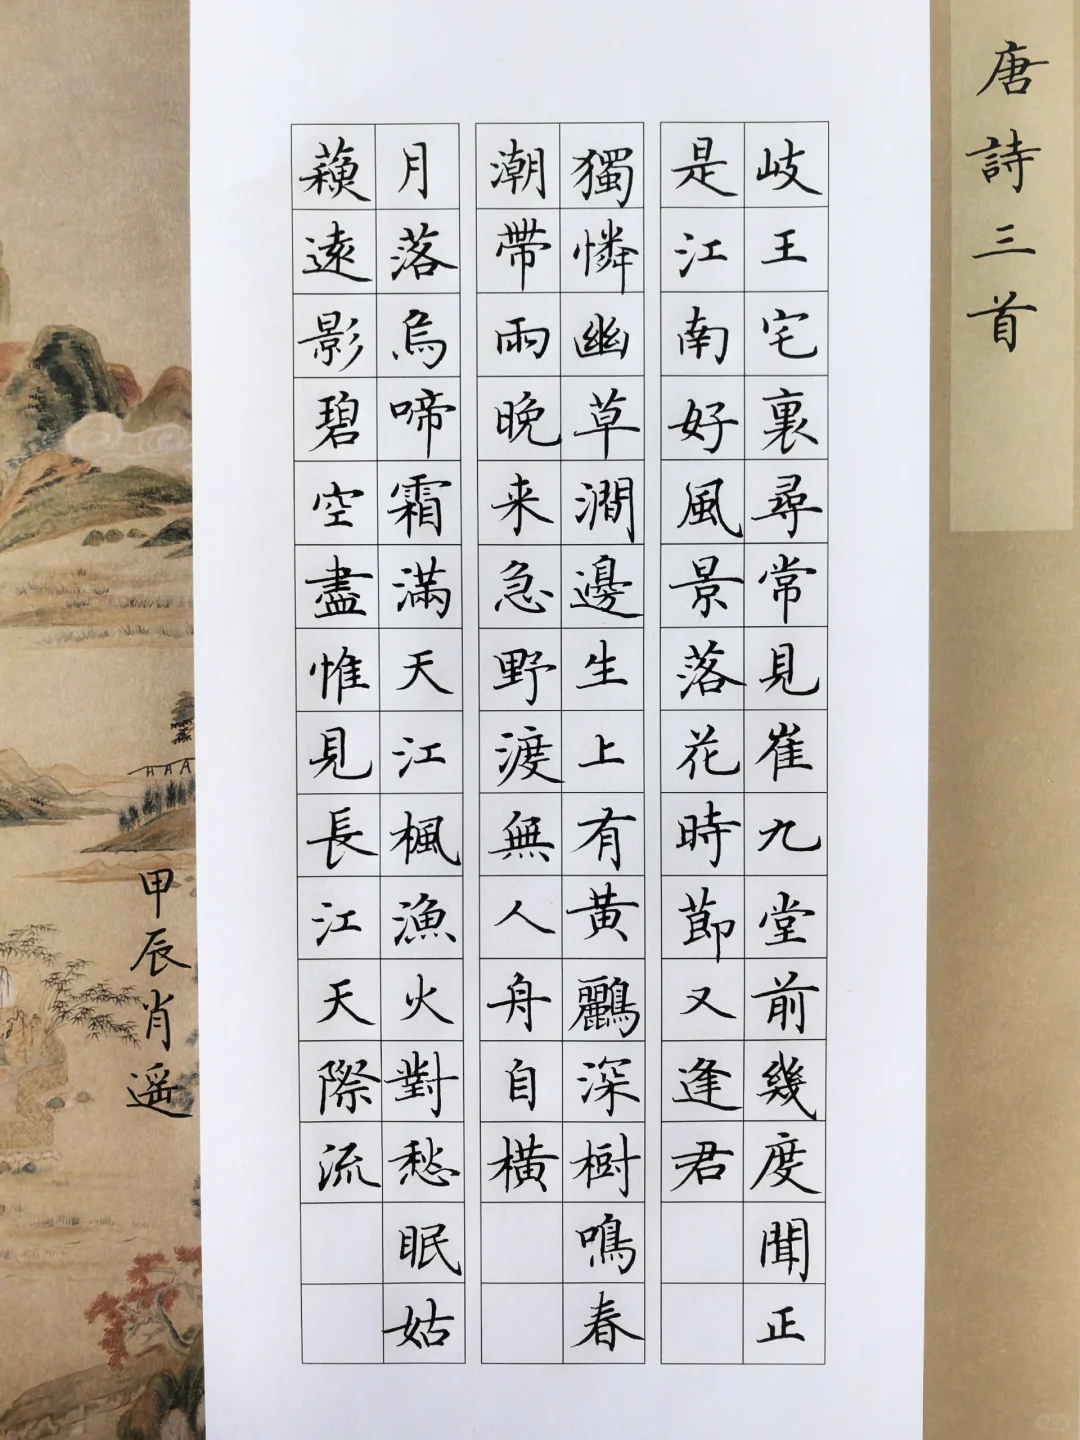 唐詩三首
岐王宅裏尋常見崔九堂前幾度聞正
是江南好風景落花時節又逢君
獨憐幽草澗邊生上有黄鸝深樹鳴春
潮帶雨晚来急野渡無人舟自橫
月落烏啼霜滿天江楓漁火對愁眠姑
蘓遠影碧空盡惟見長江天際流
甲辰肖遥